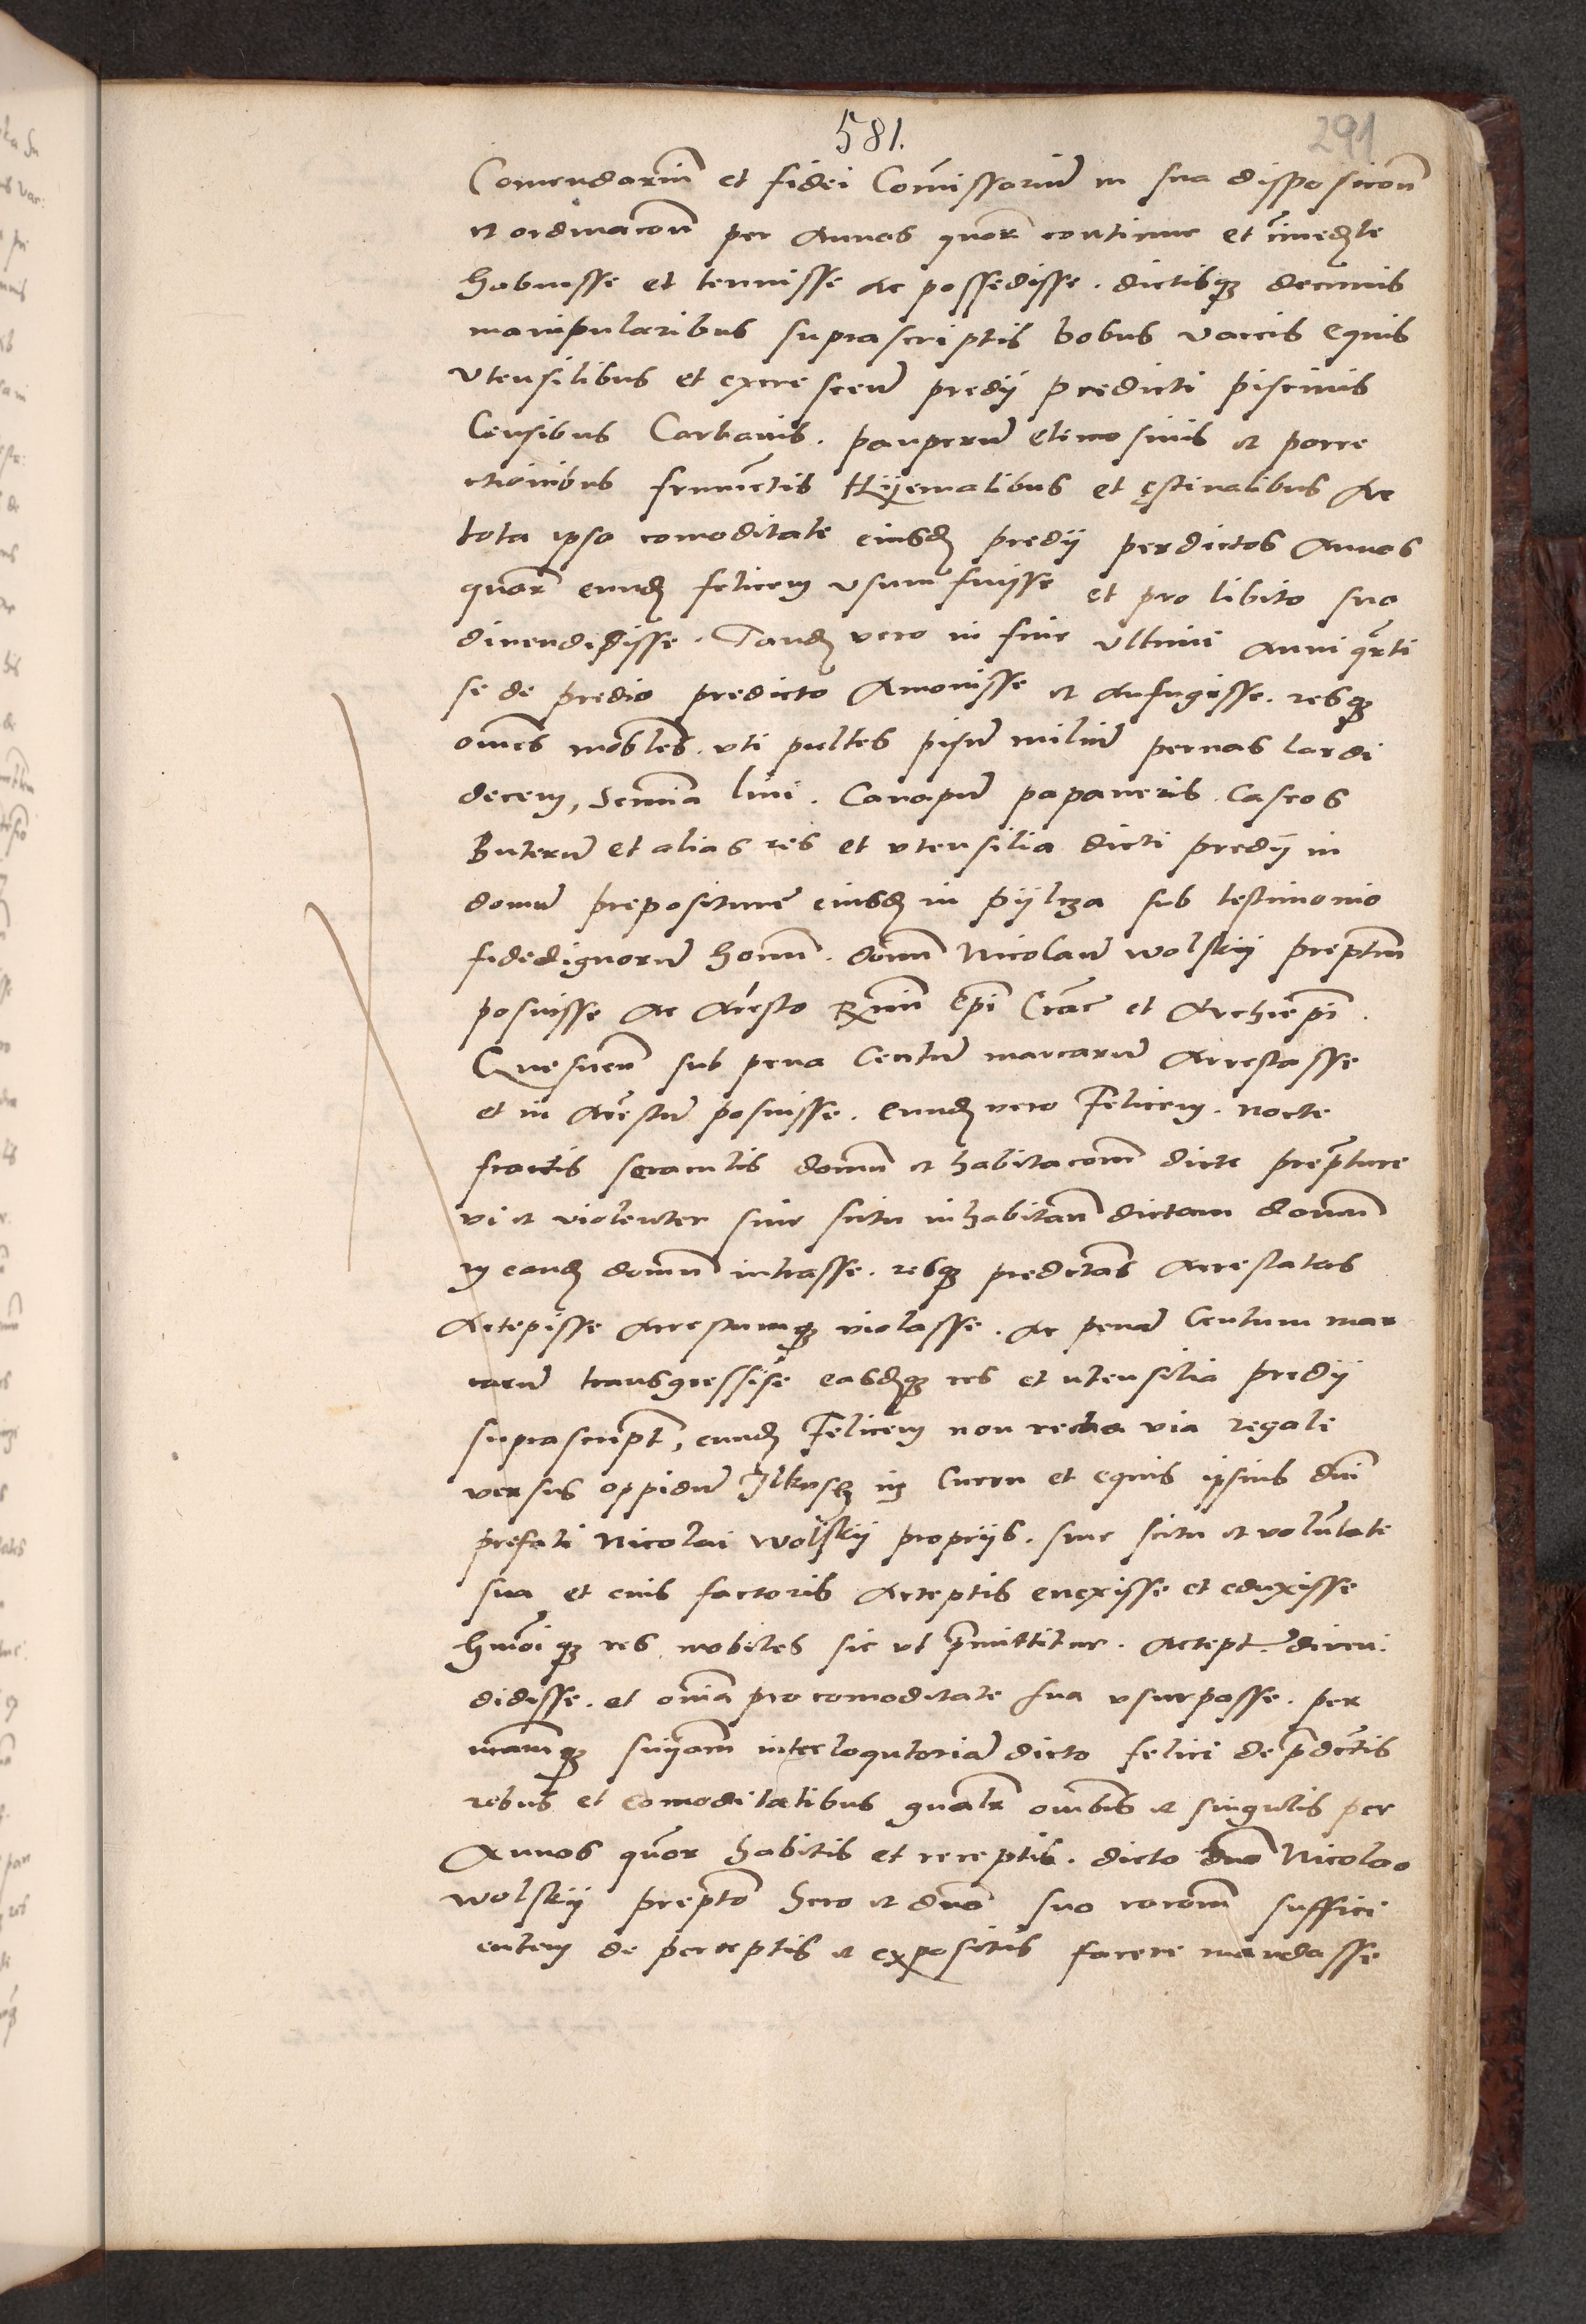 581.
291
Comendariu͂ et fidei Com̅issariu͂ in sua disposicōn
et ordinacōn per Annos quor̃ continue et im̅ed͂te
habuisse et tenuisse Ac possedisse. dictisqꝫ decimis
manipularibus suprascriptis bobus vaccis Equis
Vtensilibus et excrescen͂ predij predicti piscinis
Censibus Carbanis. pauperu͂ elimosinis et porre
ctionibus frume͂tis Hÿemalibus et ęstiualibus Ac
tota ipsa comoditate eiusd͂ predij per dictos Annos
quor̃ eund͂ felicem vsum fuisse et pro libito suo
diuendidisse. Tand͂ vero in fine vltimi Anni qr̃ti
se de predio predicto Amouisse et Aufugisse. resqꝫ
om̅es mob͂les. vti pultes pisu͂ miliu͂ pernas lardi
decem, Semi͂a lini. Canapu͂ papaueris. Caseos
Buteru͂ et alias res et vtensilia dicti predij in
domu͂ prepositure͂ eiusd͂ in pÿlcza sub testimonio
fidedignoru͂ homi͂n. dom̅ Nicolau͂ wolskij prep͂tm
posuisse Ac Ar̃esto R̃mi͂ Ep͂i Crac͂ et Archiep͂i.
Gnesnen͂ sub pena Centu͂ marcaru͂ Arrestasse
et in Ar̃estu͂ posuisse. Eund͂ vero Felicem. nocte
fractis seraculis domu͂ et habitacom͂ dicte prep͂ture
vi et violenter sine scitu inhabitan͂ dictam domu͂
in eand͂ domu͂ intrasse. resqꝫ predictas Arrestatas
Accepisse Arrestumqꝫ violasse. Ac pena͂ Centum mar
caru͂ transgressise easd͂qꝫ res et utensilia predij
suprascript͂, eund͂ Felicem non recta via regale
versus oppidu͂ Ilkusch in Curru et equis ipsius dn͂i
prefati Nicolai wolskij proprijs. sine scitu et volu͂tate
sua et eius factoris Acceptis euexisse et eduxisse
hm͂oi qꝫ res mobiles sic vt p͂mittitur. Accept͂ diuen:
didisse. et om̅ia pro comoditate sua vsurpasse. per
meamqꝫ sn͂iam interloqutoria͂ dicto felici de p͂dictis
rebus et comoditatibus gn͂alr̃ om̅ibus et singulis per
Annos quor̃ habitis et receptis. dicto dn͂o Nicolao
wolskij prep͂to hero et dn͂o suo racom͂ suffici
entem de perceptis et expositis facere mandasse